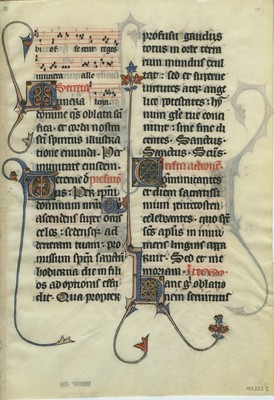 munera alle
Secreta
luya.
Munera
domine q̄s oblata sāc
tifica. et corda nostra
sc̄i spiritus illustra
tione emunda. Per
eterne dͣ prefatio
us. Per xp̄m
dominum nr̄m.
ascendens super om̄s
celos: sedensq; ad
dexteram tuam: pro
missum sp̄m sanctū
hodierna die in fili
os adoptionis effu
dit. Qua propter
profusis gaudijs
totus in orbe terra
rum mundus exul
tat: sed et superne
uirtutes atq; ange
lice potestates: hy
mnū gl̄e tue conci
nunt: sine fine di
centes. Sanctus.
Sanctus. Sāc
Infra actionē.
Communicantes
et diem sacratissi
mum pentecostes
celebrantes. quo sp̄s
sc̄s ap̄lis in innu
meris linguis appa
ruit. Sed et me
moriam.
Hanc g° oblatio
nem seruitutis